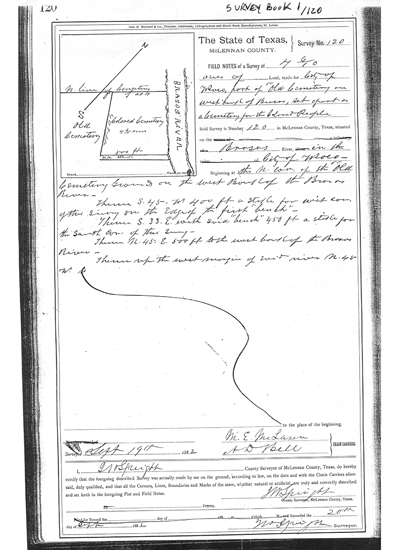 120
SURVEY BOOK 1/120
The State of Texas,
McLENNAN COUNTY.
Survey No. 120
FIELD NOTES of a Survey of
acres of Land, made for City of
Waco, part of "Old Cemetery on
west bank of Brazos, set apart as
a Cemetery for the Colored People
Said Survey is Number 120 in McLennan County, Texas, situated
on the
Brazos River, in the
City of Waco
Beginning at the N. Cor. of the "Old
N
Old
Cemetery
Colored Cemetery
BRAZOS RIVER
400 ft
Cemetery Ground on the west Bank of the Brazos
River
Thence S. 45. W. 400 ft a stake for west cor
of this Survey on the Edge of the first bench"
Thence S. 33. E. with said "bench" 458 ft a stake for
the South Cor. of this Survey
Thence N. 45. E. 500 ft to the west bank of the Brazos
River
Thence up the west margin of said river N. 45
W.
to the place of the beginning.
Surveyed Sept 19th 1882
M. E. McLaren
A D Bell
CHAIN CARRIERS.
I, County Surveyor of McLennan County, Texas, do hereby
certify that the foregoing described Survey was actually made by me on the ground, according to law, on the date and with the Chain Carriers aforesaid,
duly qualified, and that all the Corners, Lines, Boundaries and Marks of the same, whether natural or artificial, are truly and correctly described
and set forth in the foregoing Plat and Field Notes.
Deputy.
County Surveyor, McLennan County, Texas.
and Recorded the 20th
day of Sept 1882
Surveyor.